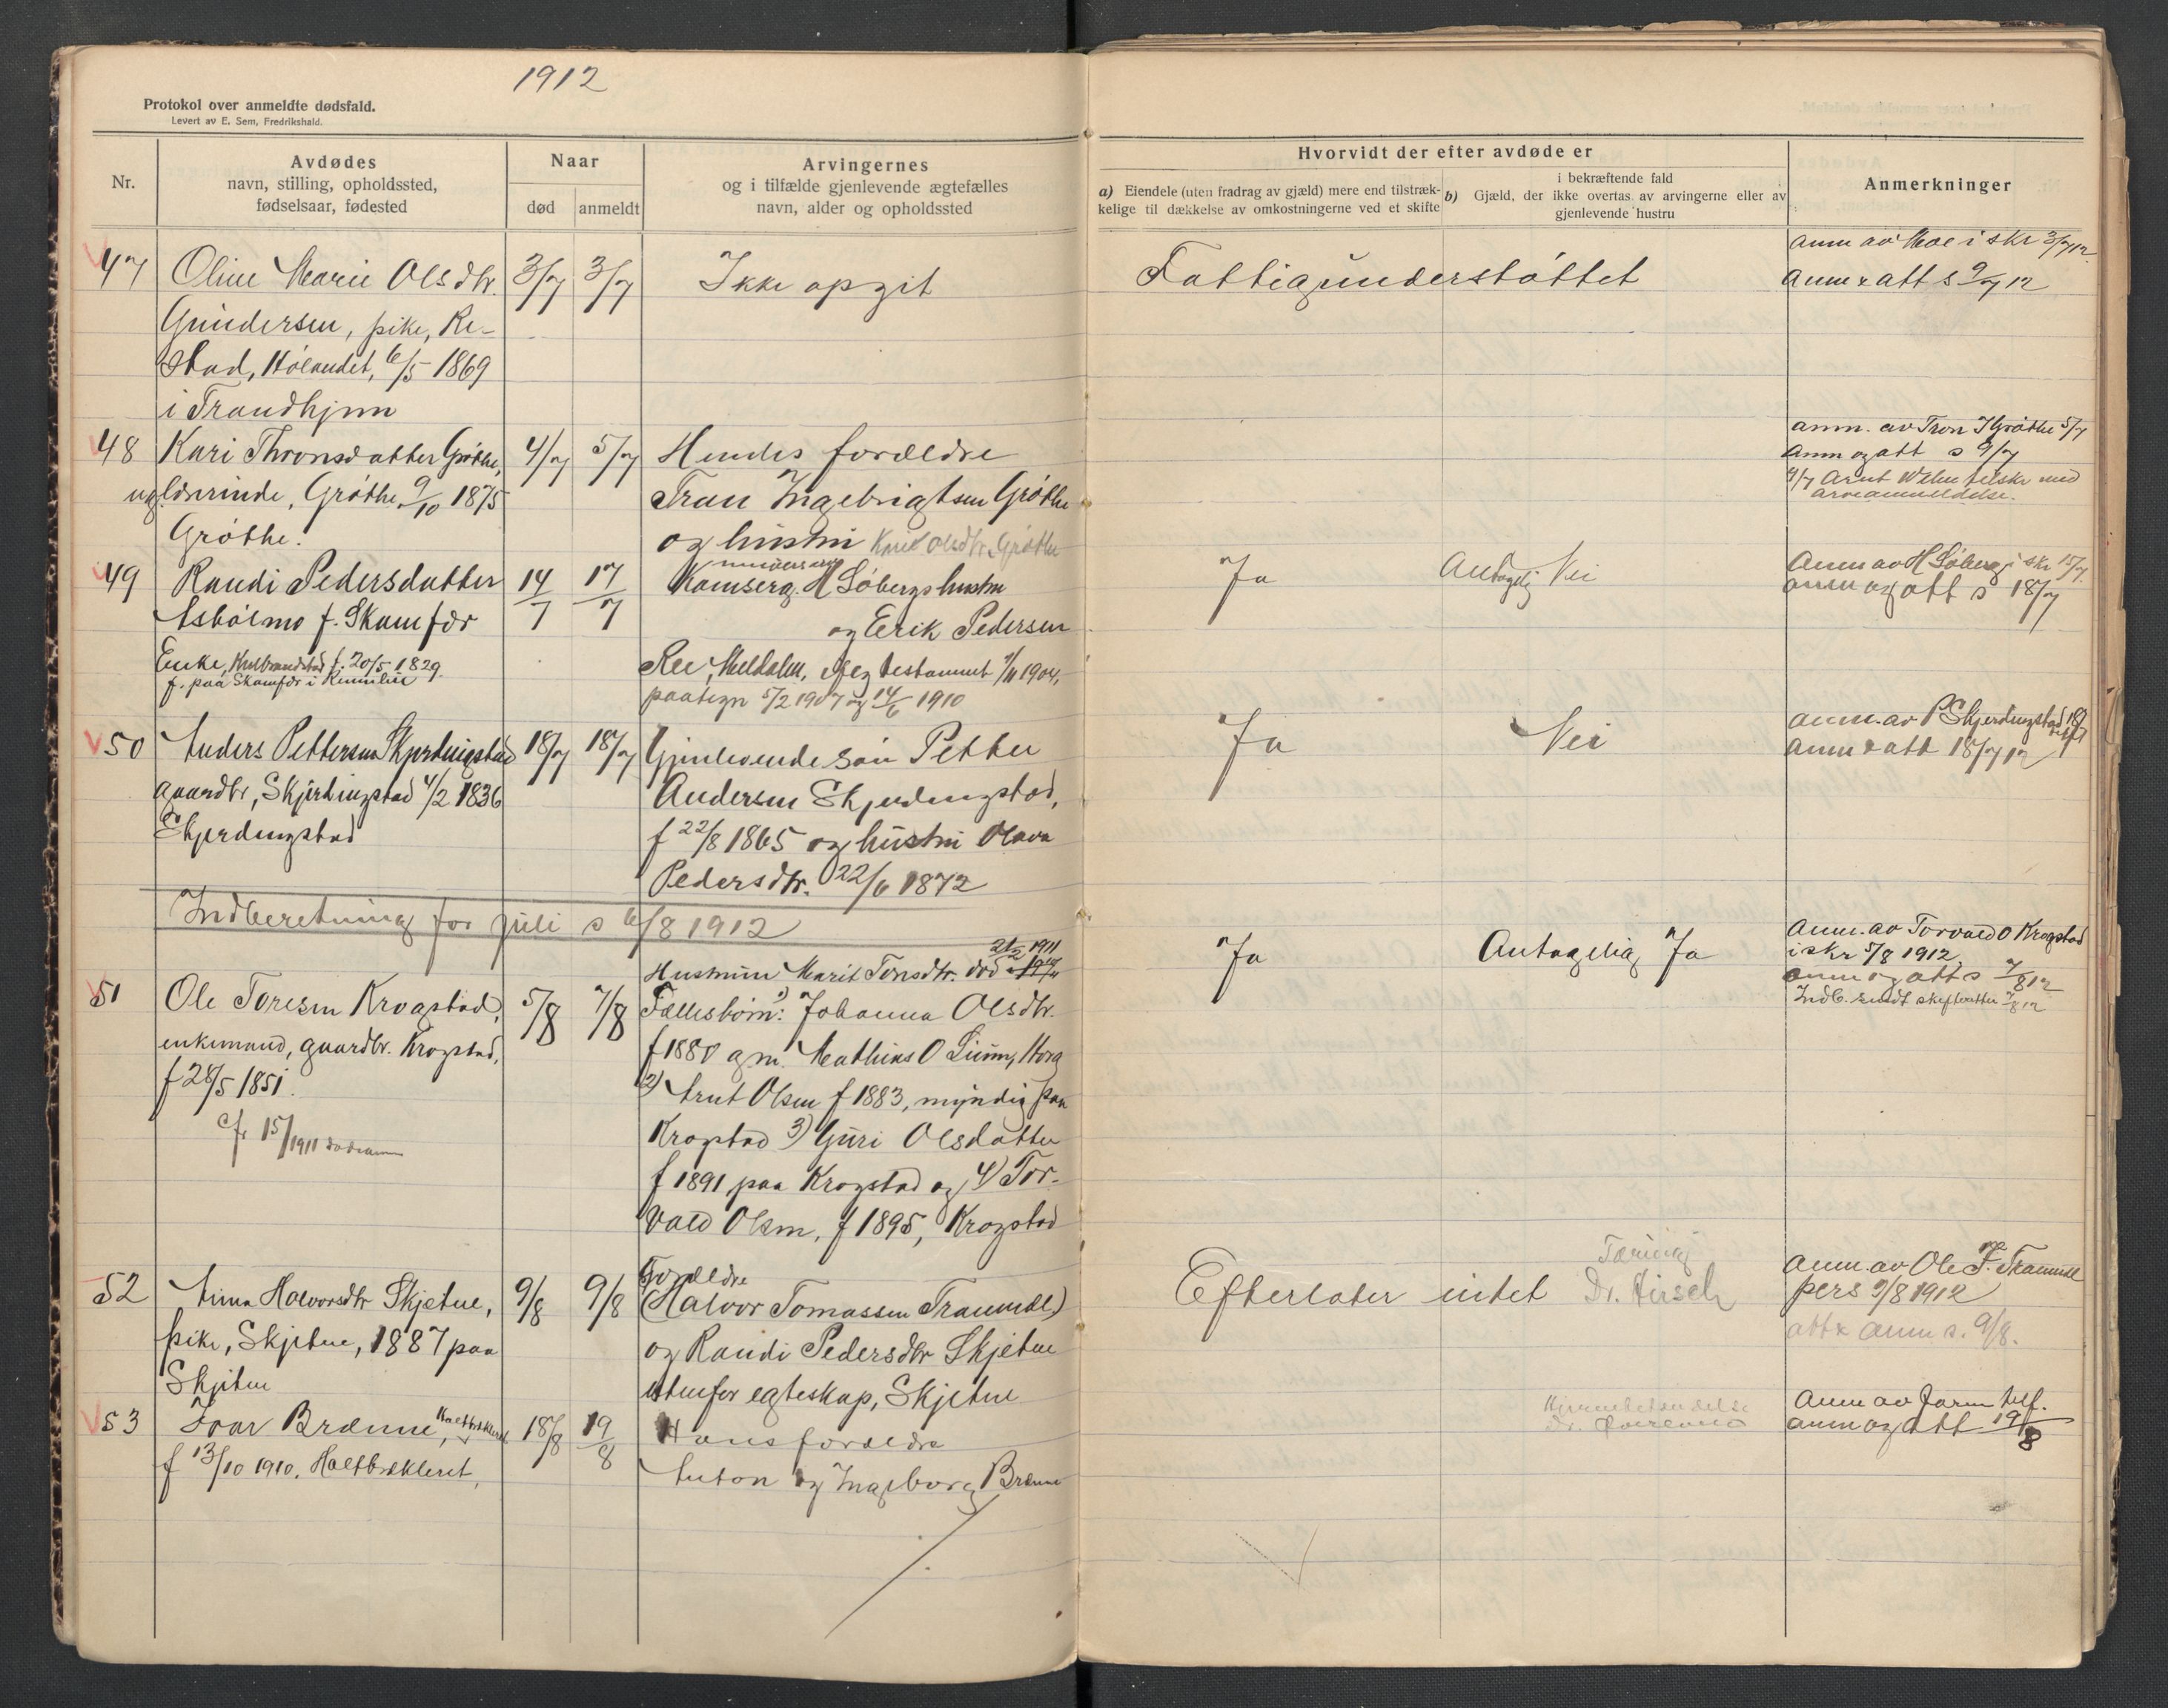 1912
Protokol over anmeldte dødsfald.
Levert av E. Sem, Fredrikshald.
Nr.
Avdødes
navn, stilling, opholdssted,
fødselsaar, fødested
Naar
død
anmeldt
Arvingernes
og i tilfælde gjenlevende ægtefælles
navn, alder og opholdssted
Hvorvidt der efter avdøde er
a) Eiendele (uten fradrag av gjæld) mere end tilstræk-
kelige til dækkelse av omkostningerne ved et skifte
i bekræftende fald
b) Gjæld, der ikke overtas av arvingerne eller av
gjenlevende hustru
Anmerkninger
47
Oline Marie Olsdtr.
Gundersen, pike, Re-
stad, Hølandet, 6/5 1869
i Trondhjem
3/7
3/7
Ikke opgit
Fattigunderstøttet
anm av Moe i skr 3/7 12
anm & att s 9/7 12
48
Kari Thronsdatter Grøthe,
Grøthe 9/10 1875
Grøthe.
4/7
5/7
Hendes forældre
Tron Ingebrigtsen Grøthe
og hustru Olsdtr. Grøthe
anm. av Tron I Grøthe 5/7
Anm og att s 9/7
9/7 Arnt med
arveanmeldelse.
49
Randi Pedersdatter
Asbølmo f. Skamfær
Enke, f. 20/5 1829
f. paa Skamfær i
14/7
17/7
H Løbergs hustru
og Erik Pedersen
Ree, Meldalen, efter testament 1904,
paategn 5/2 1907 og 14/6 1910
Ja
Antagelig Nei
Anm av H Løberg i skr 15/7
anm og att s 18/7
50
Anders Pettersen Skjerdingstad
gaardbr, Skjerdingstad 4/2 1836
Skjerdingstad
18/7
18/7
Gjenlevende søn Petter
Andersen Skjerdingstad,
f 22/8 1865 og hustru Olava
Pedersdtr. 22/6 1872
Ja
Nei
anm. av P Skjerdingstad 18/7
anm & att 18/7 12
Indberetning for juli s 6/8 1912
51
Ole Toresen Krogstad,
enkemand, gaardbr. Krogstad,
f 28/5 1851.
cfr 15/1911
5/8
7/8
Hustruen Marit Tonsdtr. død 21/2 1911
Fællesbørn: 1) Johanna Olsdtr.
f 1880 gm. Mathias O Lium, Horg
2) Arnt Olsen f 1883, myndig paa
Krogstad 3) Guri Olsdatter
f 1891 paa Krogstad og 4) Tor-
vald Olsen, f 1895, Krogstad
Ja
Antagelig Ja
Anm. av Torvald O Krogstad
i skr 5/8 1912
anm og att s 7/8 12
Indb. sendt skifteretten 7/8 12
52
Anna Halvorsdtr Skjetne,
pike, Skjetne, 1887 paa
Skjetne
9/8
9/8
Forældre
(Halvor Tomassen Tranmæl)
og Randi Pedersdtr Skjetne
utenfor egteskap, Skjetne
Efterlater intet
Tæring
Dr. Hirsch
Anm. av Ole Tranmæl
pers 9/8 1912
att & anm s. 9/8.
53
Ivar Brænne,
f 13/10 1910, Haltbrekleret,
18/8
19/8
Hans forældre
Anton og Ingeborg Brænne
Dr.
Anm av telf.
anm og att 19/8